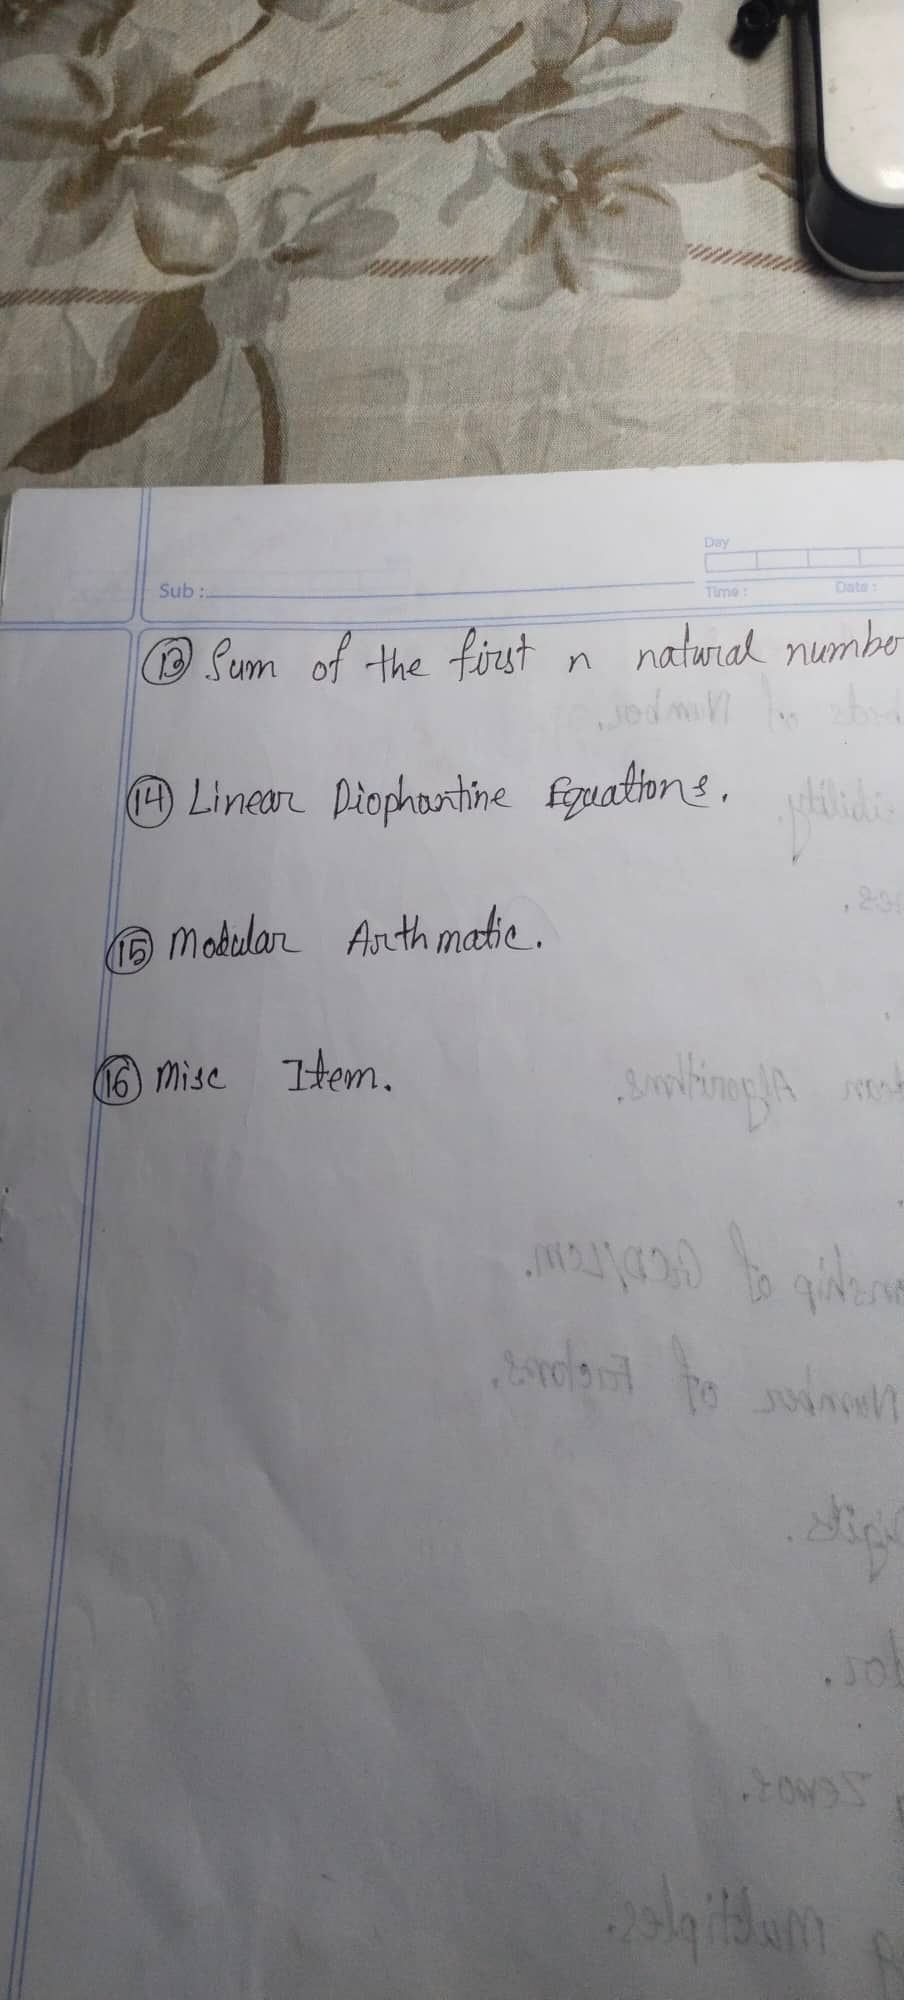 Day
Sub :
Time :
Date :
13 Sum of the first n natural number
14 Linear Diophantine Equations.
15 Modular Arthmatic.
16 Misc Item.